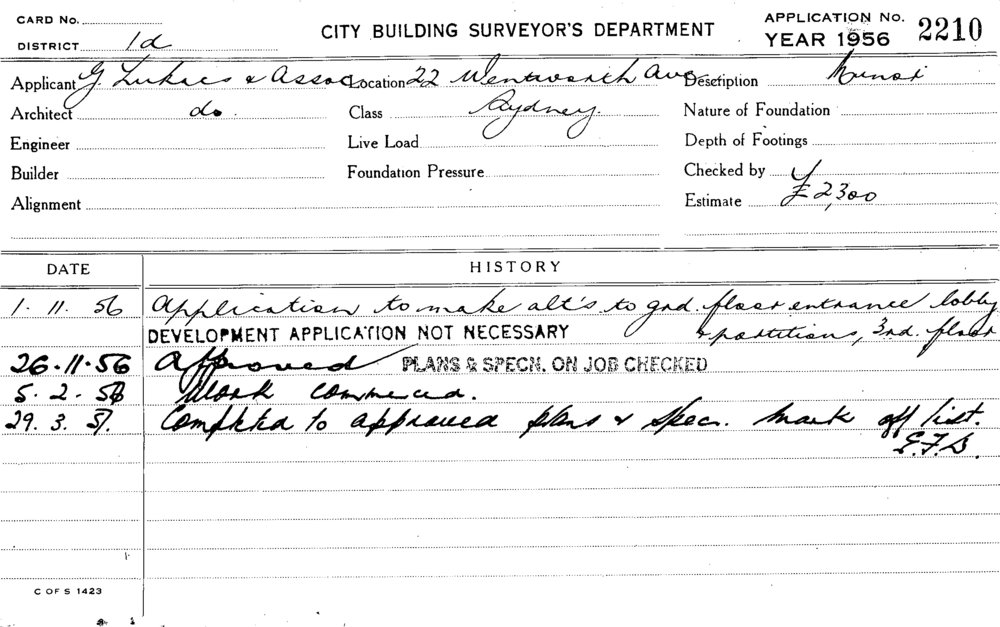 CARD No. CITY BUILDING SURVEYOR'S DEPARTMENT APPLICATION No. 2210
DISTRICT 1d YEAR 1956
Applicant G. Lukacs & Assoc Location 22 Wentworth Ave Description Minor
Architect do. Class Sydney. Nature of Foundation
Engineer Live Load Depth of Footings
Builder Foundation Pressure Checked by
Alignment Estimate £2,300
DATE HISTORY
1. 11. 56 Application to make alt's to grd. floor entrance lobby
DEVELOPMENT APPLICATION NOT NECESSARY & partitions, 3rd. floor
26.11.56 Approved PLANS & SPECN. ON JOB CHECKED
5. 2. Work commenced.
29. 3. 57. Completed to approved plans & spec. Mark off list.
E.F.S.
C OF S 1423